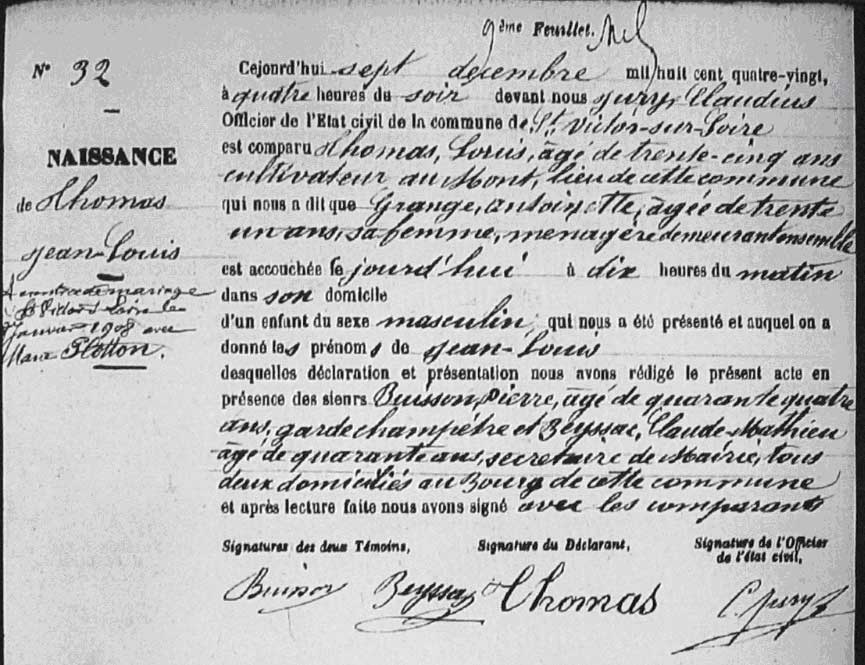 9ème Feuillet.
N° 32
NAISSANCE
de Thomas
Jean-Louis
A contracté mariage
à St Victor s Loire le
Janvier 1908 avec
Marie Flotton.
Cejourd'hui sept décembre mil huit cent quatre-vingt,
à quatre heures du soir devant nous Jury, Claudius
Officier de l'Etat civil de la commune de St Victor-sur-Loire
est comparu Thomas, Louis, âgé de trente-cinq ans
cultivateur au Mont, lieu de cette commune
qui nous a dit que Grange, Antoinette, âgée de trente
un ans, sa femme, menagère demeurant ensemble
est accouchée le jourd'hui à dix heures du matin
dans son domicile
d'un enfant du sexe masculin, qui nous a été présenté et auquel on a
donné les prénoms de Jean-Louis
desquelles déclaration et présentation nous avons rédigé le présent acte en
présence des sieurs Buisson, Pierre, âgé de quarante quatre
ans, garde champêtre et Beyssac, Claude Mathieu
âgé de quarante ans, secrétaire de Mairie, tous
deux domiciliés au Bourg de cette commune
et après lecture faite nous avons signé avec les comparants
Signatures des deux Témoins, Signature du Déclarant, Signature de l'Officier
de l'état civil,
Buisson Beyssac Thomas C. Jury